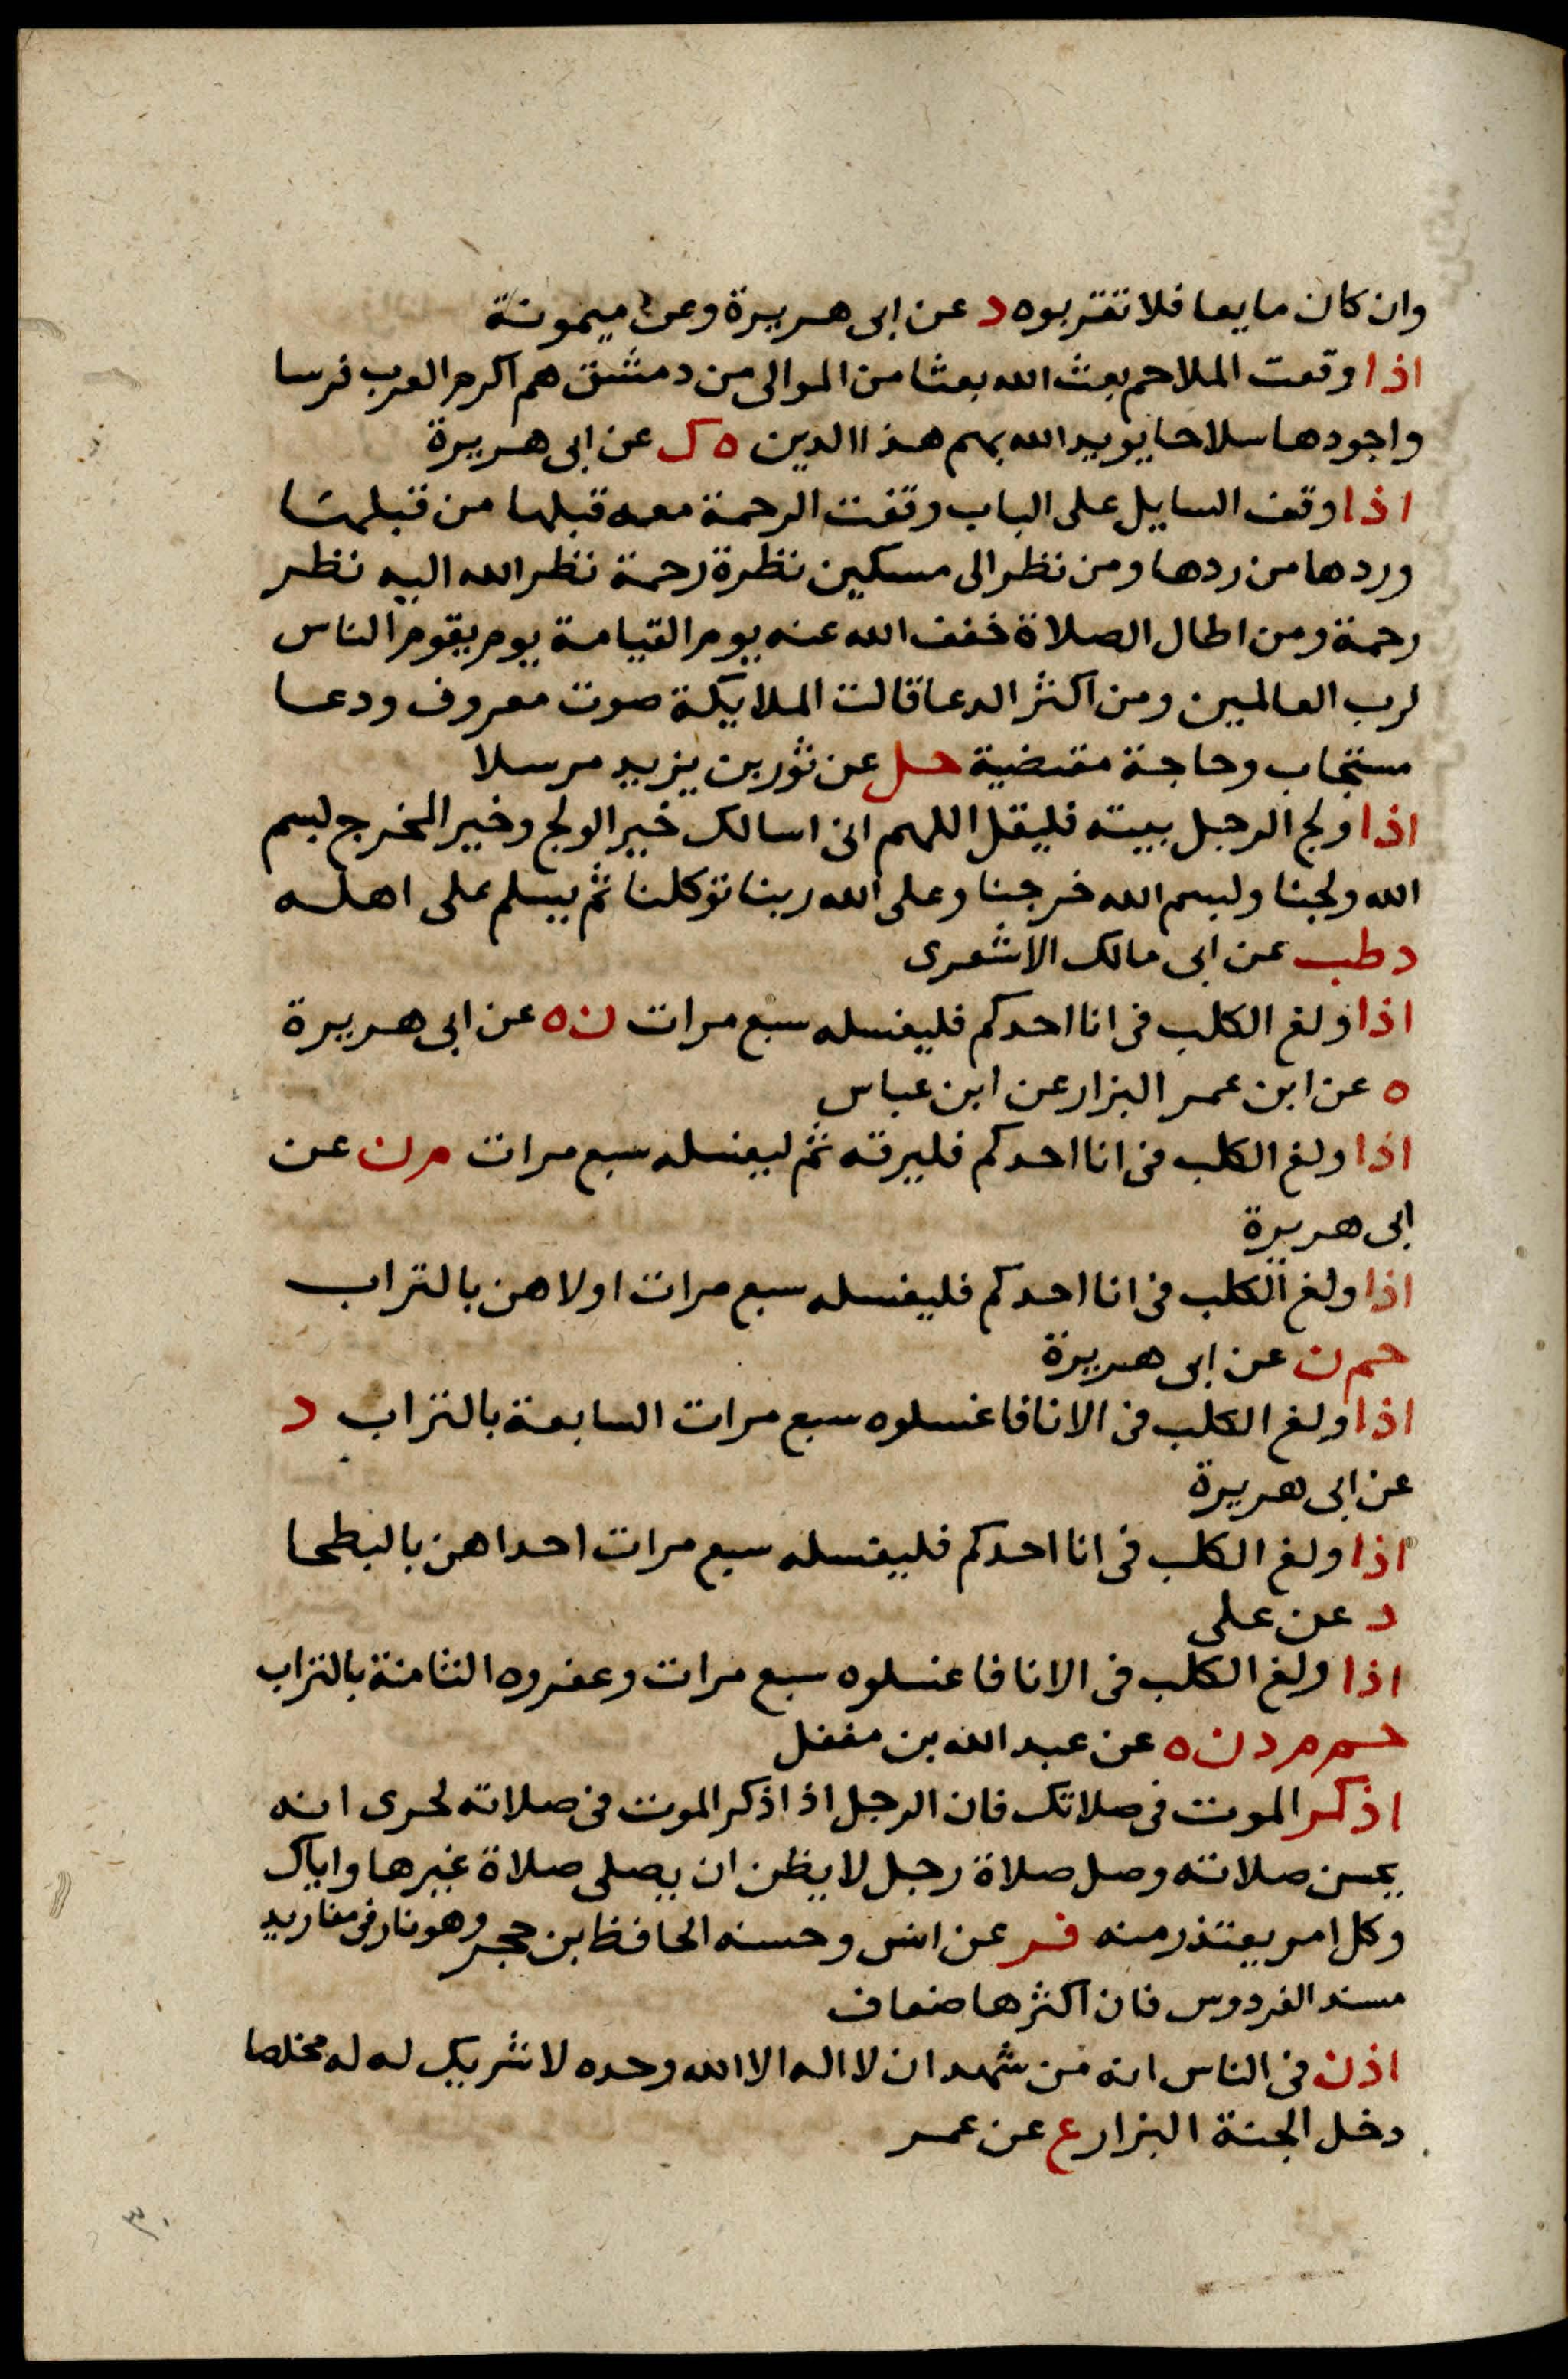 وان كان مايعا فلا تقربوه د عن ابى هريرة وعن ميمونة
اذا وقعت الملاحم بعث الله بعثا من الموالى من دمشق هم اكرم العرب فرسا
واجودها سلاحا يويد الله بهم هذا الدين ه ك عن ابى هريرة
اذا وقف السايل على الباب وقفت الرحمة معه قبلها من قبلها
وردها من ردها ومن نظر الى مسكين نظرة رحمة نظر الله اليه نظر
رحمة ومن اطال الصلاة خفف الله عنه يوم القيامة يوم يقوم الناس
لرب العالمين ومن اكثر الدعا قالت الملايكة صوت معروف ودعا
مستجاب وحاجة مقضية حل عن ثور بن يزيد مرسلا
اذا ولج الرجل بيته فليقل اللهم انى اسالك خير الولج وخير المخرج بسم
الله ولجنا وبسم الله خرجنا وعلى الله ربنا توكلنا ثم يسلم على اهله
د طب عن ابى مالك الاشعرى
اذا ولغ الكلب فى انا احدكم فليغسله سبع مرات ن ه عن ابى هريرة
ه عن ابن عمر البزار عن ابن عباس
اذا ولغ الكلب فى انا احدكم فليرقه ثم ليغسله سبع مرات م ن عن
ابى هريرة
اذا ولغ الكلب فى انا احدكم فليغسله سبع مرات اولاهن بالتراب
حم ن عن ابى هريرة
اذا ولغ الكلب فى الانا فاغسلوه سبع مرات السابعة بالتراب د
عن ابى هريرة
اذا ولغ الكلب فى انا احدكم فليغسله سبع مرات احداهن بالبطحا
د عن على
اذا ولغ الكلب فى الانا فاغسلوه سبع مرات وعفروه الثامنة بالتراب
حم م د ن ه عن عبد الله بن مغفل
اذكر الموت فى صلاتك فان الرجل اذا ذكر الموت فى صلاته لحرى انه
يحسن صلاته وصل صلاة رجل لا يظن ان يصلى صلاة غيرها واياك
وكل امر يعتذر منه فر عن انس وحسنه الحافظ بن حجر وهو نادر فى مفاريد
مسند الفردوس فان اكثرها ضعاف
اذن فى الناس انه من شهد ان لا اله الا الله وحده لا شريك له له مخلصا
دخل الجنة البزار ع عن عمر
٣٠